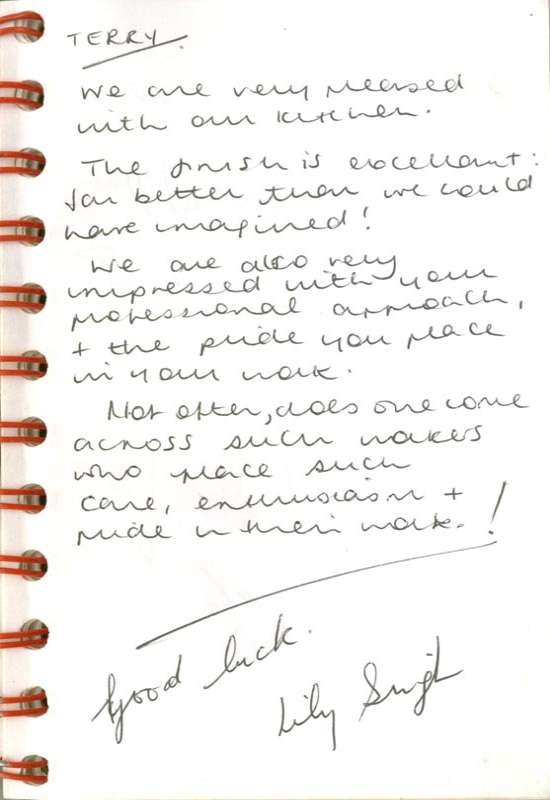 TERRY.
We are very pleased
with our kitchen.
The finish is excellant:
far better than we could
have imagined!
We are also very
impressed with your
professional approach,
+ the pride you place
in your work.
Not often, does one come
across such makers
who place such
care, enthusiasm +
pride in their work.!
Good luck.
Lily Singh